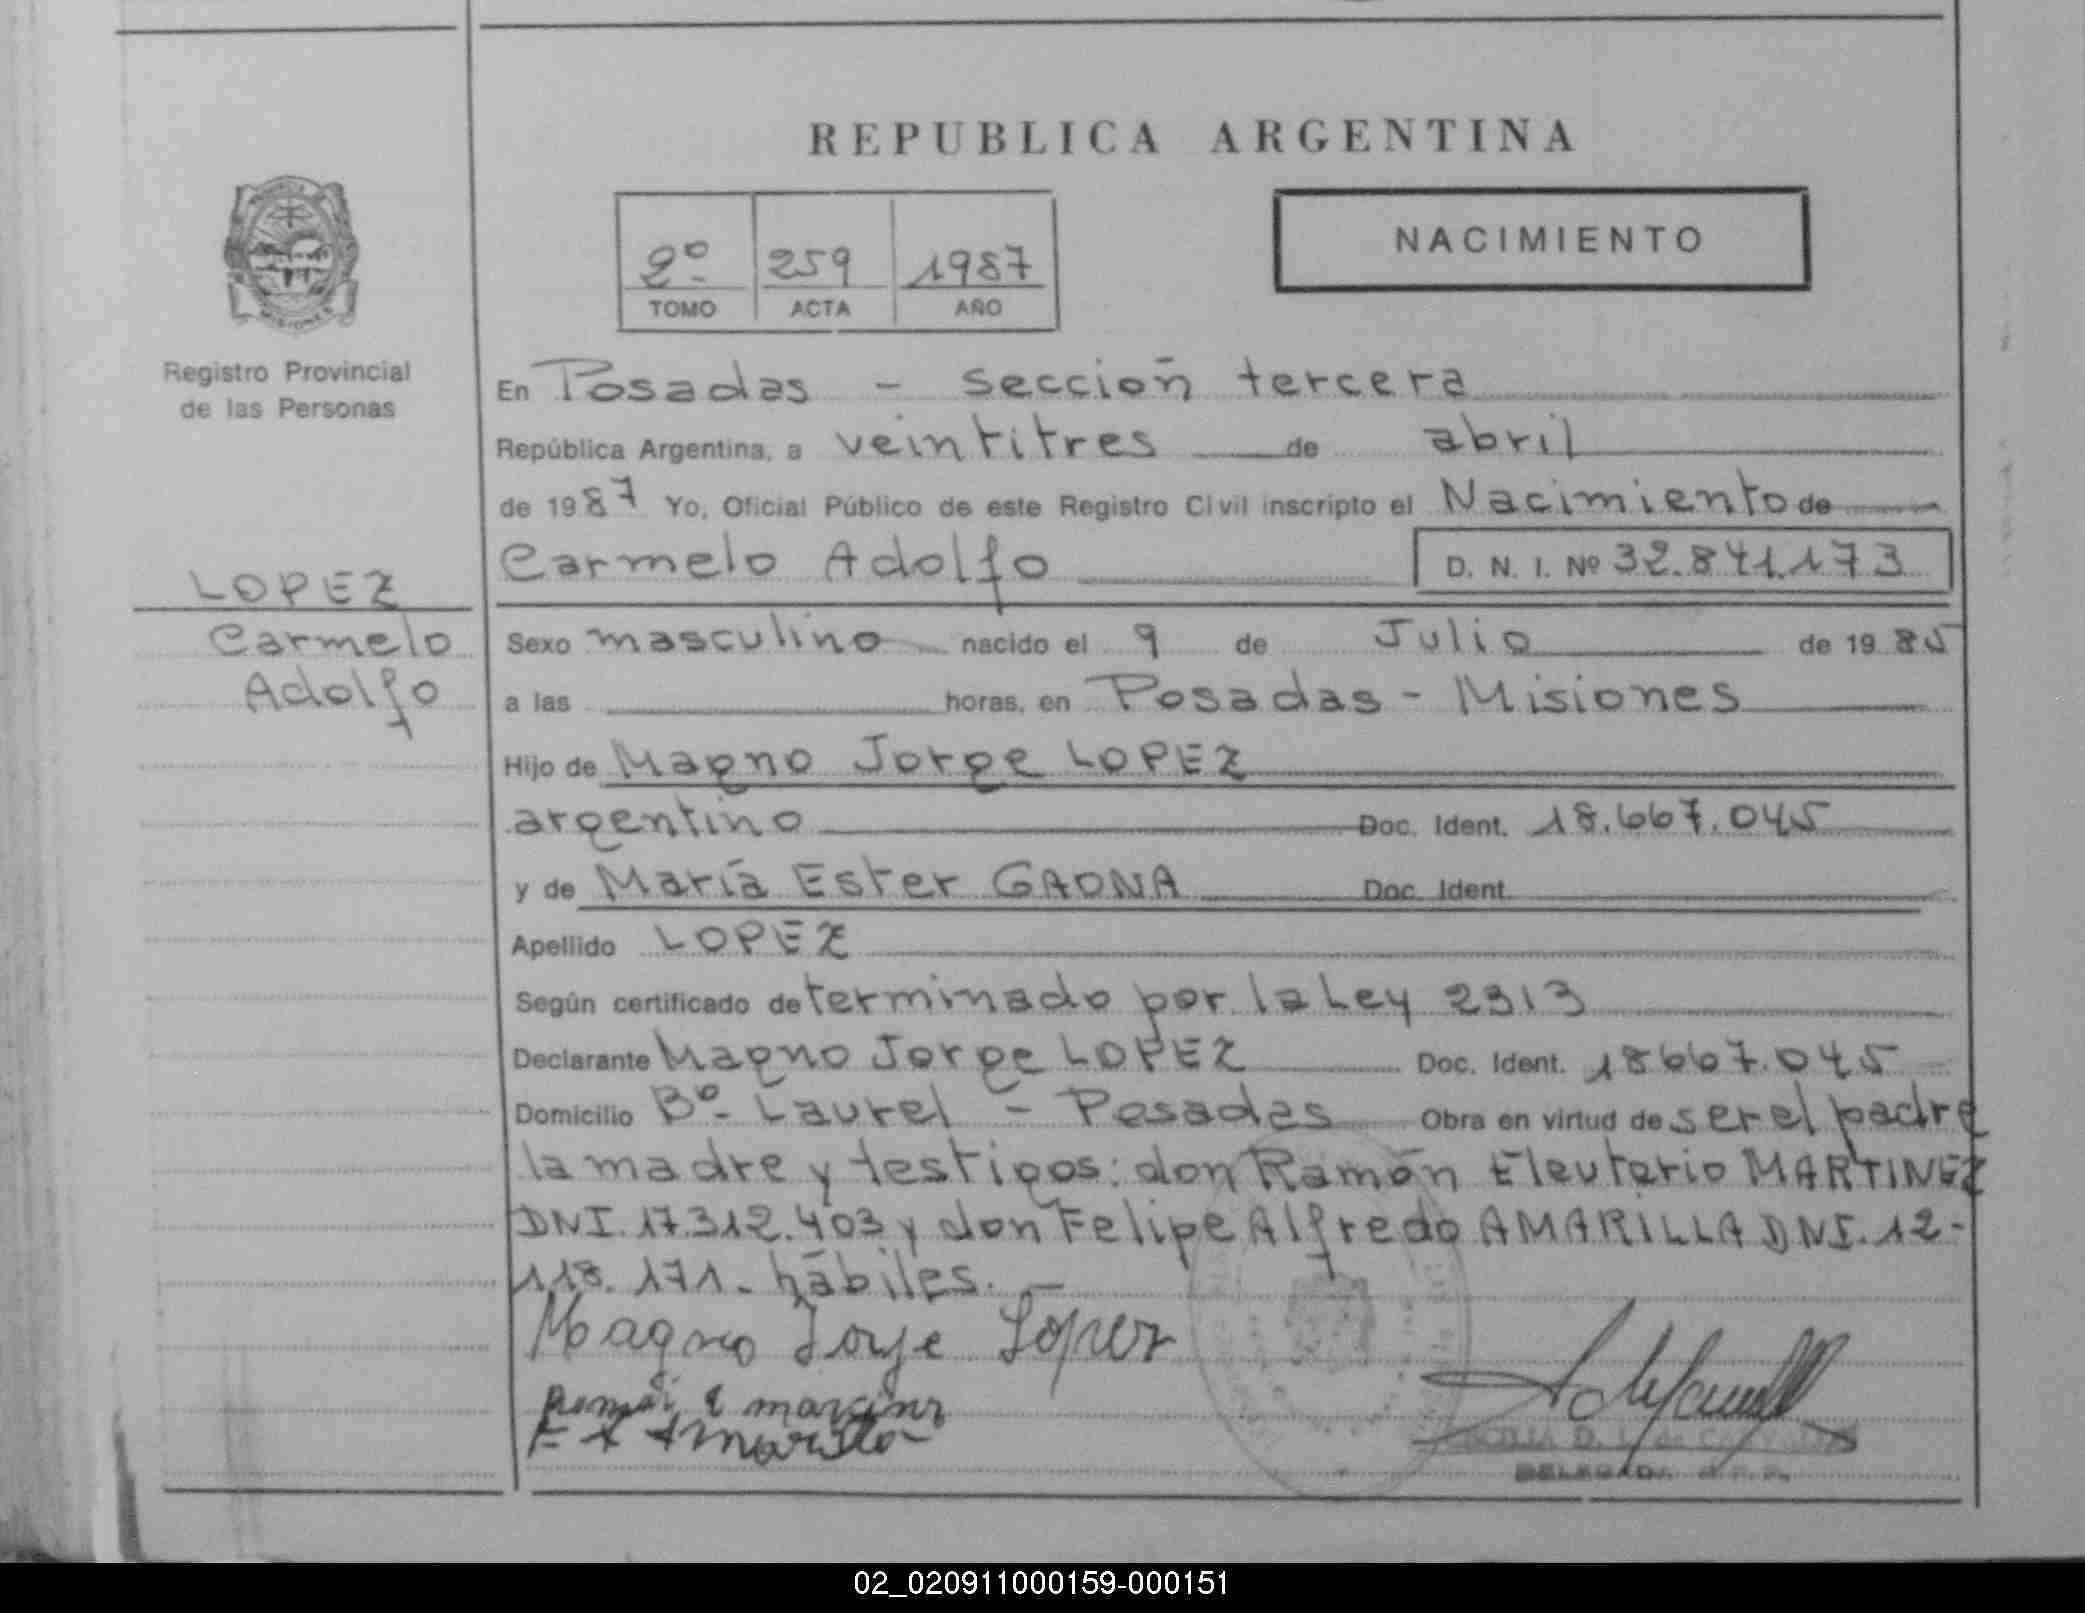 REPUBLICA ARGENTINA
2º 259 1987
TOMO ACTA AÑO
NACIMIENTO
MISIONES
Registro Provincial
de las Personas
LOPEZ
Carmelo
Adolfo
En Posadas - sección tercera
República Argentina, a veintitres de abril
de 1987 Yo, Oficial Público de este Registro Civil inscripto el Nacimiento de
Carmelo Adolfo D. N. I. Nº 32.841.173
Sexo masculino nacido el 9 de Julio de 1985
a las horas, en Posadas - Misiones
Hijo de Magno Jorge LOPEZ
argentino Doc. Ident. 18.667.045
y de María Ester GAONA Doc. Ident.
Apellido LOPEZ
Según certificado determinado por la Ley 2313
Declarante Magno Jorge LOPEZ Doc. Ident. 18667.045
Domicilio Bº- Laurel - Posadas Obra en virtud de ser el padre
la madre y testigos: don Ramón Eleuterio MARTINEZ
DNI. 17.312.403 y don Felipe Alfredo AMARILLA DNI. 12-
118.171- hábiles. -
Magno Jorje Lopez
F A Amarilla
DELEGADA R.P.P.
02_020911000159-000151